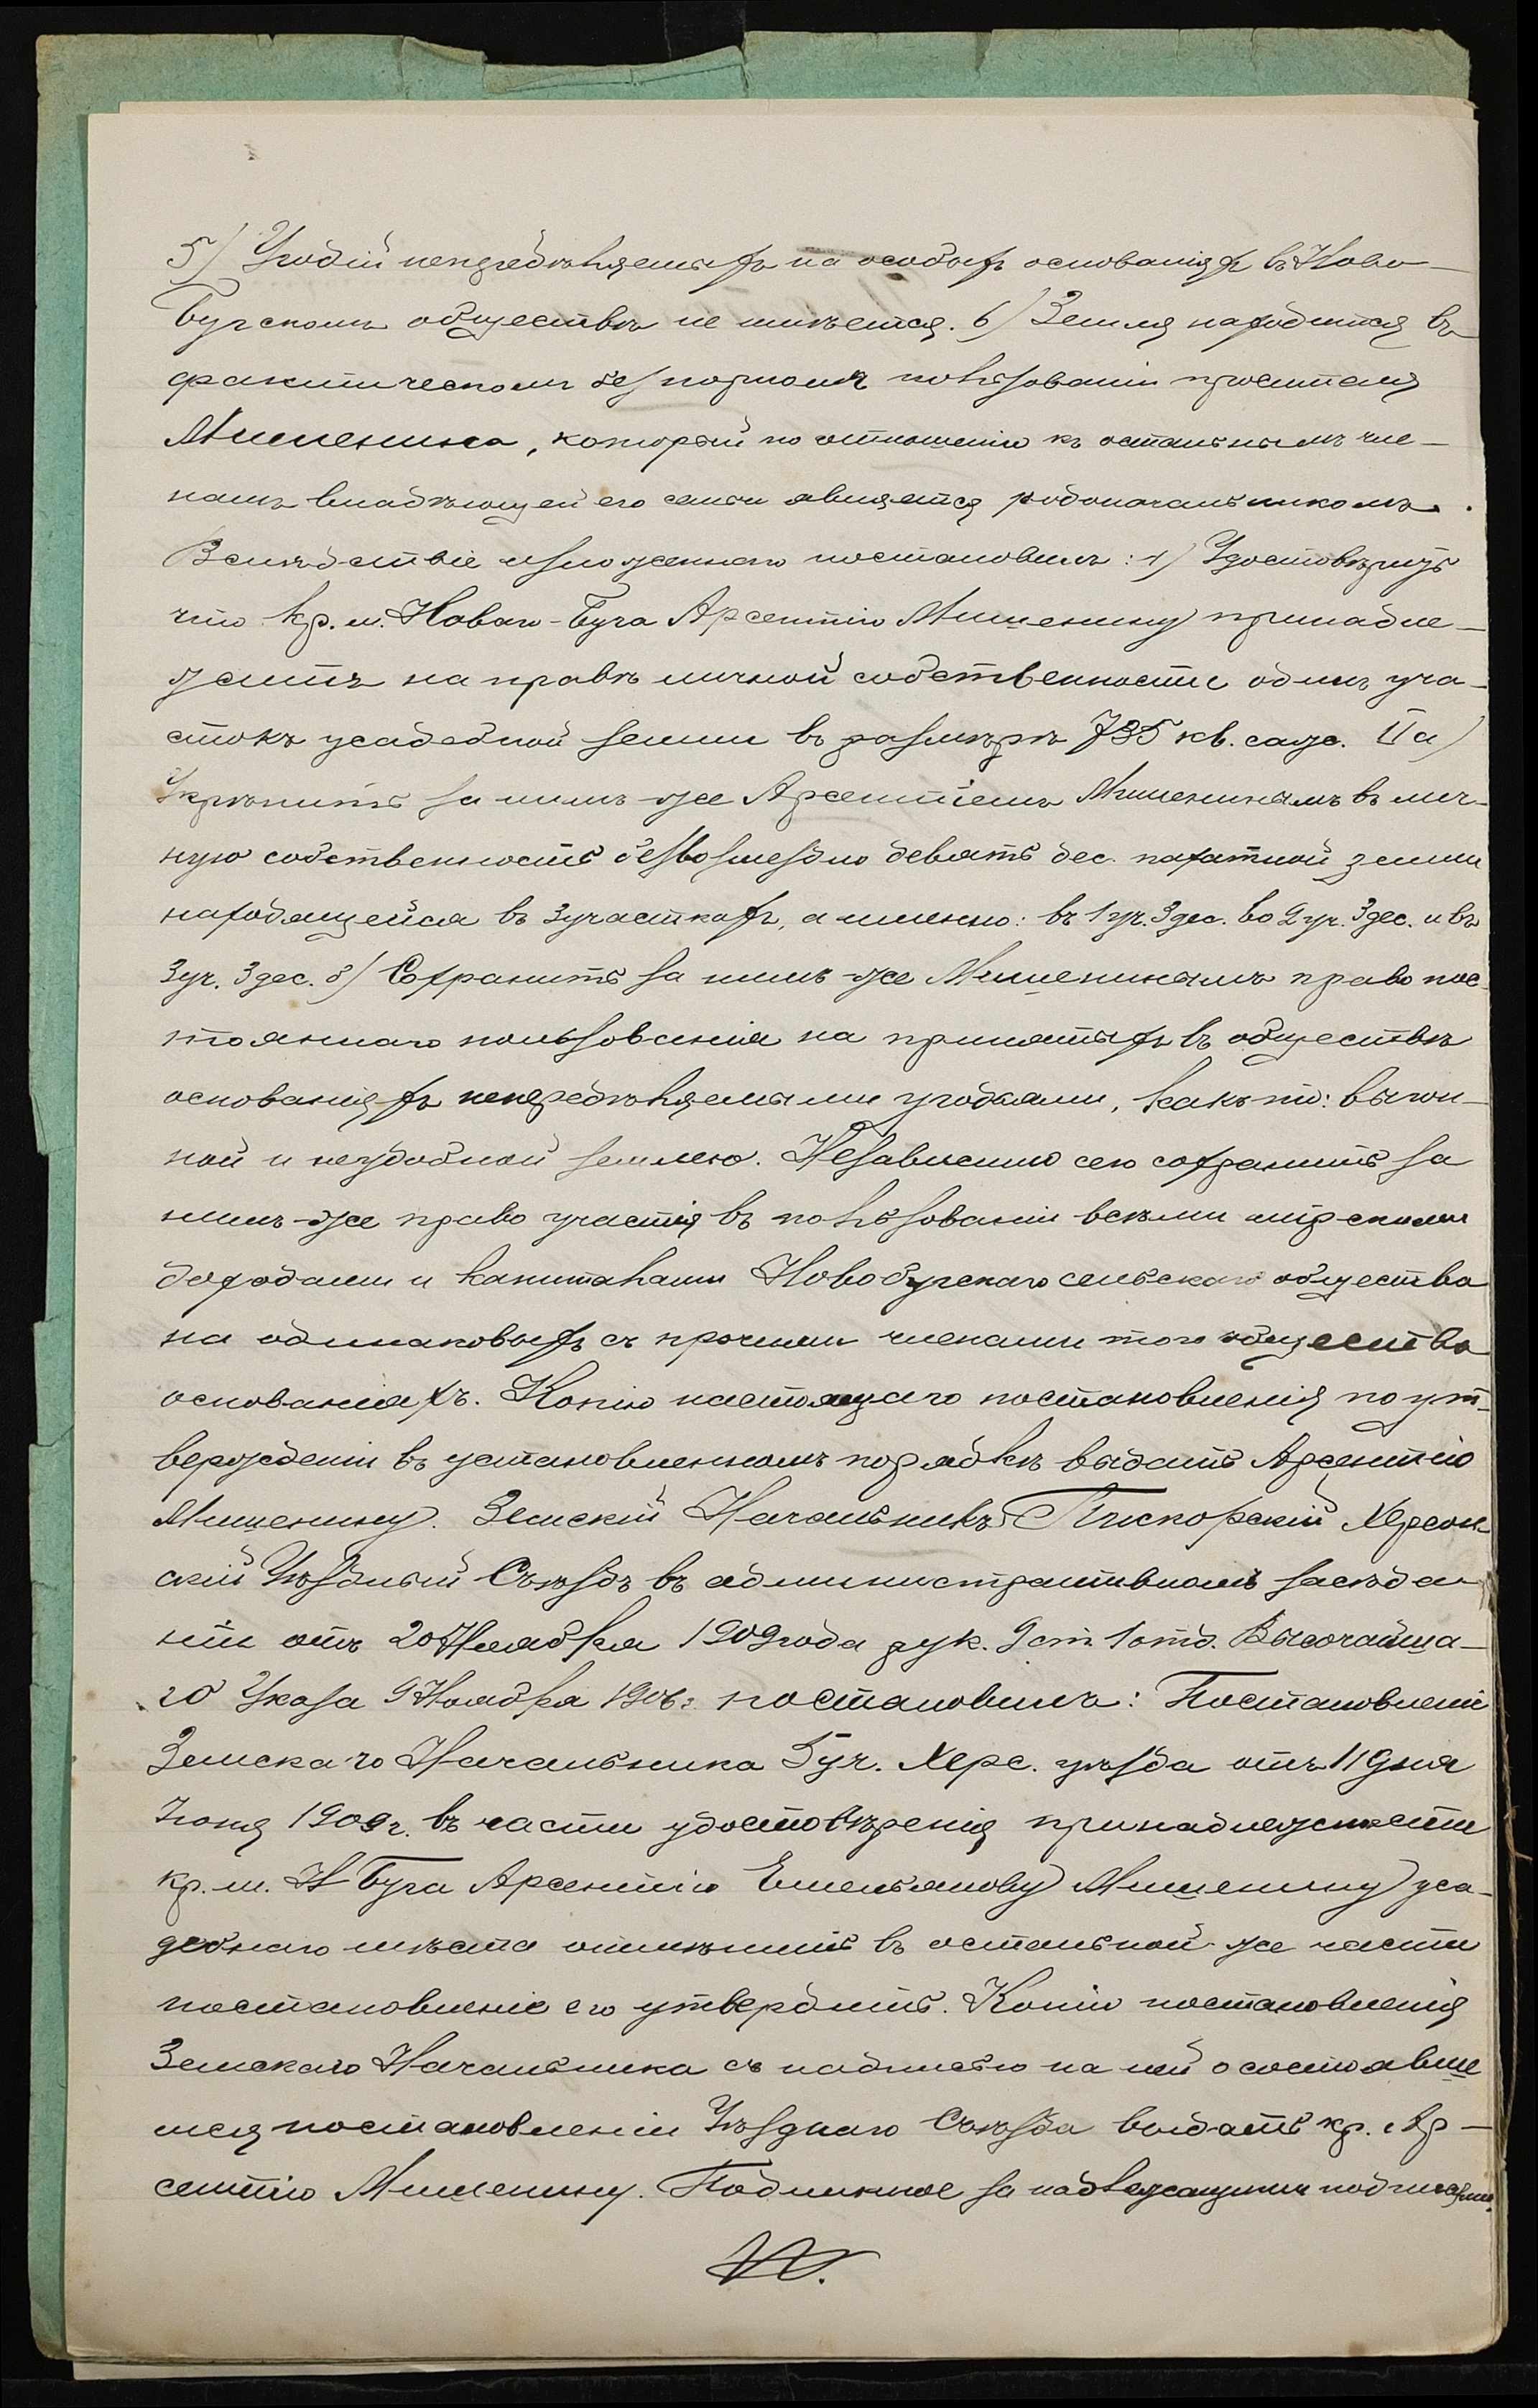 5) Угодій непередѣляемыхъ на особыхъ основаніяхъ въ Ново-
бугскомъ обществѣ не имѣется. 6) Земля находится въ
фактическомъ безспорномъ пользованіи просителя
Мишенина, который по отношенію къ остальнымъ чле-
намъ владѣющей его семьи является родоначальникомъ.
Вслѣдствіе изложеннаго постановилъ: 1) Удостовѣрить
что кр. м. Новаго-Буга Арсентію Мишенину принадле-
житъ на правѣ личной собственности одинъ уча-
стокъ усадебной земли въ размѣрѣ 735 кв. саж. II а)
Укрѣпить за нимъ-же Арсентіемъ Мишенинымъ въ лич-
ную собственность безвозмездно девять дес. пахатной земли
находящейся въ 3 участкахъ, а именно: въ 1 уч. 3 дес. во 2 уч. 3 дес. и въ
3 уч. 3 дес. б) Сохранить за нимъ-же Мишенинымъ право пос-
тояннаго пользованія на принятыхъ въ обществѣ
основаніяхъ непередѣляемыми угодьями, какъ то: выгон-
ной и неудобной землею. Независимо сего сохранить за
нимъ-же право участія въ пользованіи всѣми мірскими
доходами и капиталами Новобугскаго сельскаго общества
на одинаковыхъ съ прочими членами того общества
основаніяхъ. Копію настоящаго постановленія по ут-
вержденіи въ установленномъ порядкѣ выдать Арсентію
Мишенину. Земскій Начальникъ Пискорскій Херсон-
скій Уѣздный Съѣздъ въ административномъ засѣда-
ніи отъ 20 Ноября 1909 года рук. 9 ст. 1 отд. Высочайша-
го Указа 9 Ноября 1906 г. постановилъ: Постановленіе
Земскаго Начальника 5 уч. Херс. уѣзда отъ 11 дня
Іюня 1909 г. въ части удостовѣренія принадлежности
кр. м. Н-Буга Арсентію Емельянову Мишенину уса-
дебнаго мѣста отмѣнить въ остальной-же части
постановленіе его утвердить. Копію постановленія
Земскаго Начальника съ надписью на ней о состоявше
мся постановленіи Уѣзднаго Съѣзда выдать кр. Ар-
сентію Мишенину. Подлинное за надлежащими подписями.